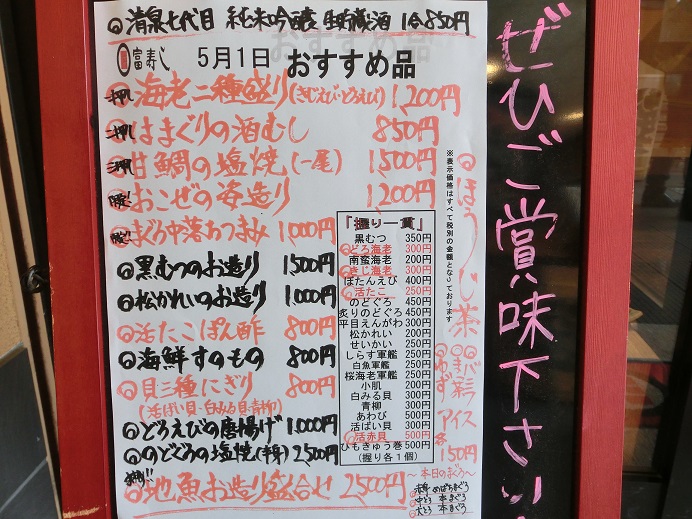 ◎清泉七代目 純米吟醸 生貯蔵酒 1合850円
富寿し 5月1日 おすすめ品
一押 海老二種盛り(きじえび・どろえび) 1,200円
二押 はまぐりの酒むし 850円
三押 甘鯛の塩焼(一尾) 1,500円
おこぜの姿造り 1,200円
まぐろ中落つまみ 1,000円
◎黒むつのお造り 1,500円
◎松かれいのお造り 1,000円
◎活たこぽん酢 800円
◎海鮮すのもの 800円
◎貝三種にぎり 800円
(活ばい貝・白みる貝・青柳)
◎どろえびの唐揚げ 1,000円
◎のどぐろの塩焼(半身) 2,500円
◎地魚お造り盛合せ 2,500円
「握り一貫」
黒むつ 350円
◎どろ海老 300円
南蛮海老 200円
◎きじ海老 300円
ぼたんえび 400円
◎活たこ 250円
のどぐろ 450円
炙りのどぐろ 450円
平目えんがわ 300円
松かれい 200円
せいかい 250円
しらす軍艦 250円
白魚軍艦 250円
桜海老軍艦 250円
小肌 200円
白みる貝 300円
青柳 300円
あわび 500円
活ばい貝 300円
◎活赤貝 500円
ひもきゅう巻 500円
(握り各1個)
※表示価格はすべて税別の金額となっております。
◎ほうじ茶
◎ゆず
アイス
各150円
~本日のまぐろ~
赤身 めばちまぐろ
中とろ 本まぐろ
大とろ 本まぐろ
ぜひご賞味下さい